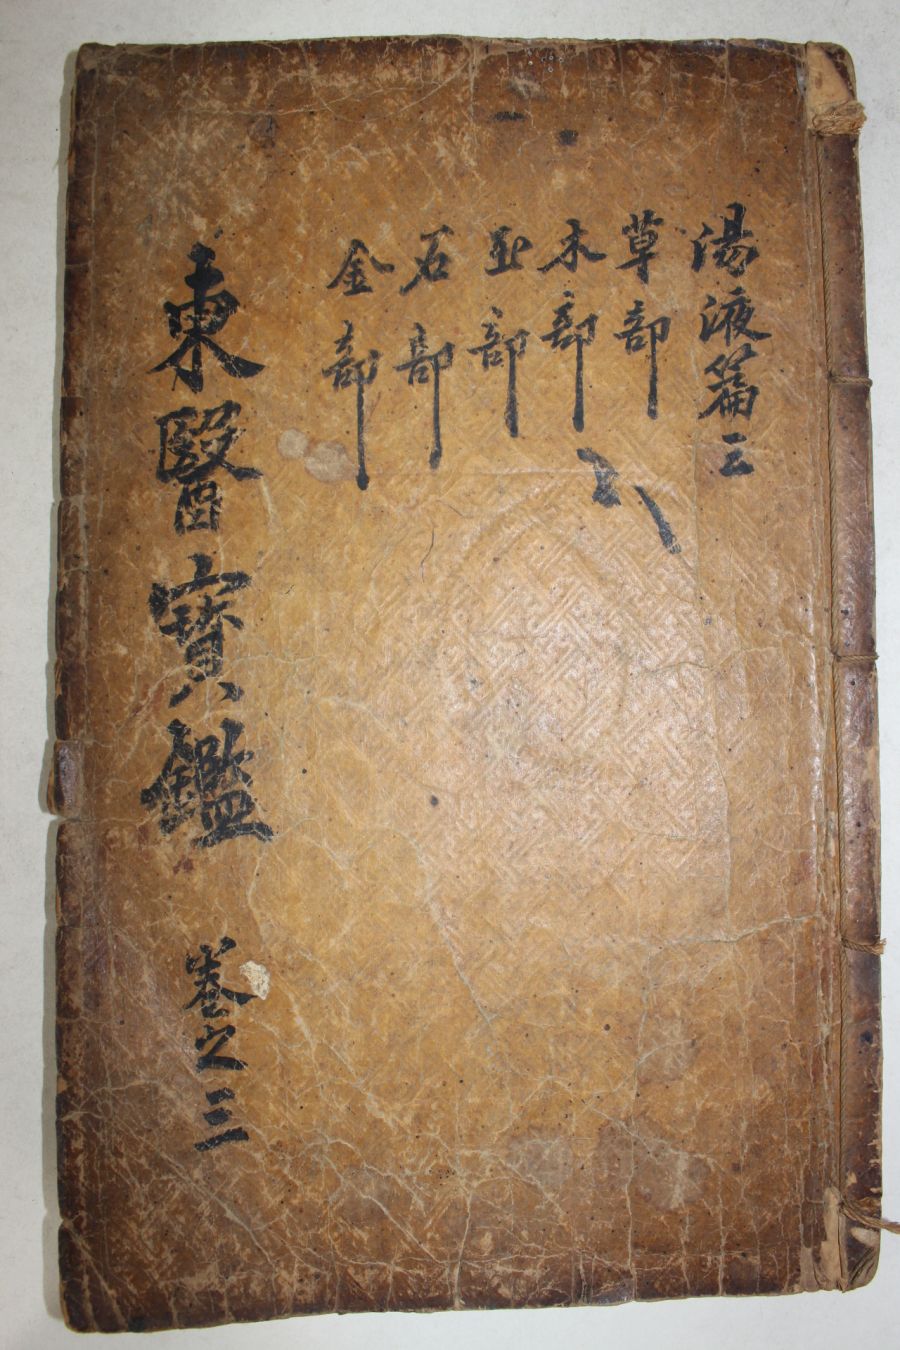 湯液篇三
草部
木部
玉部
石部
金部
東醫寶鑑 卷之三